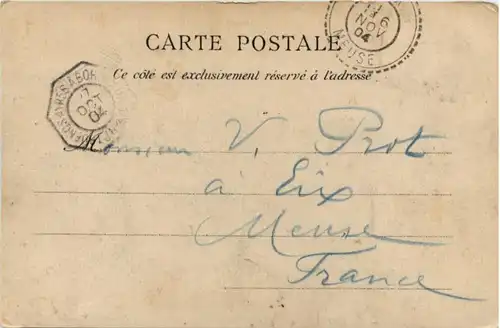 CARTE POSTALE
Ce côté est exclusivement réservé à l'adresse
6
NOV
04
MEUSE
BUENOS-AYRES A BOR
OCT
04
Monsieur V. Prot
à Eix
Meuse
France